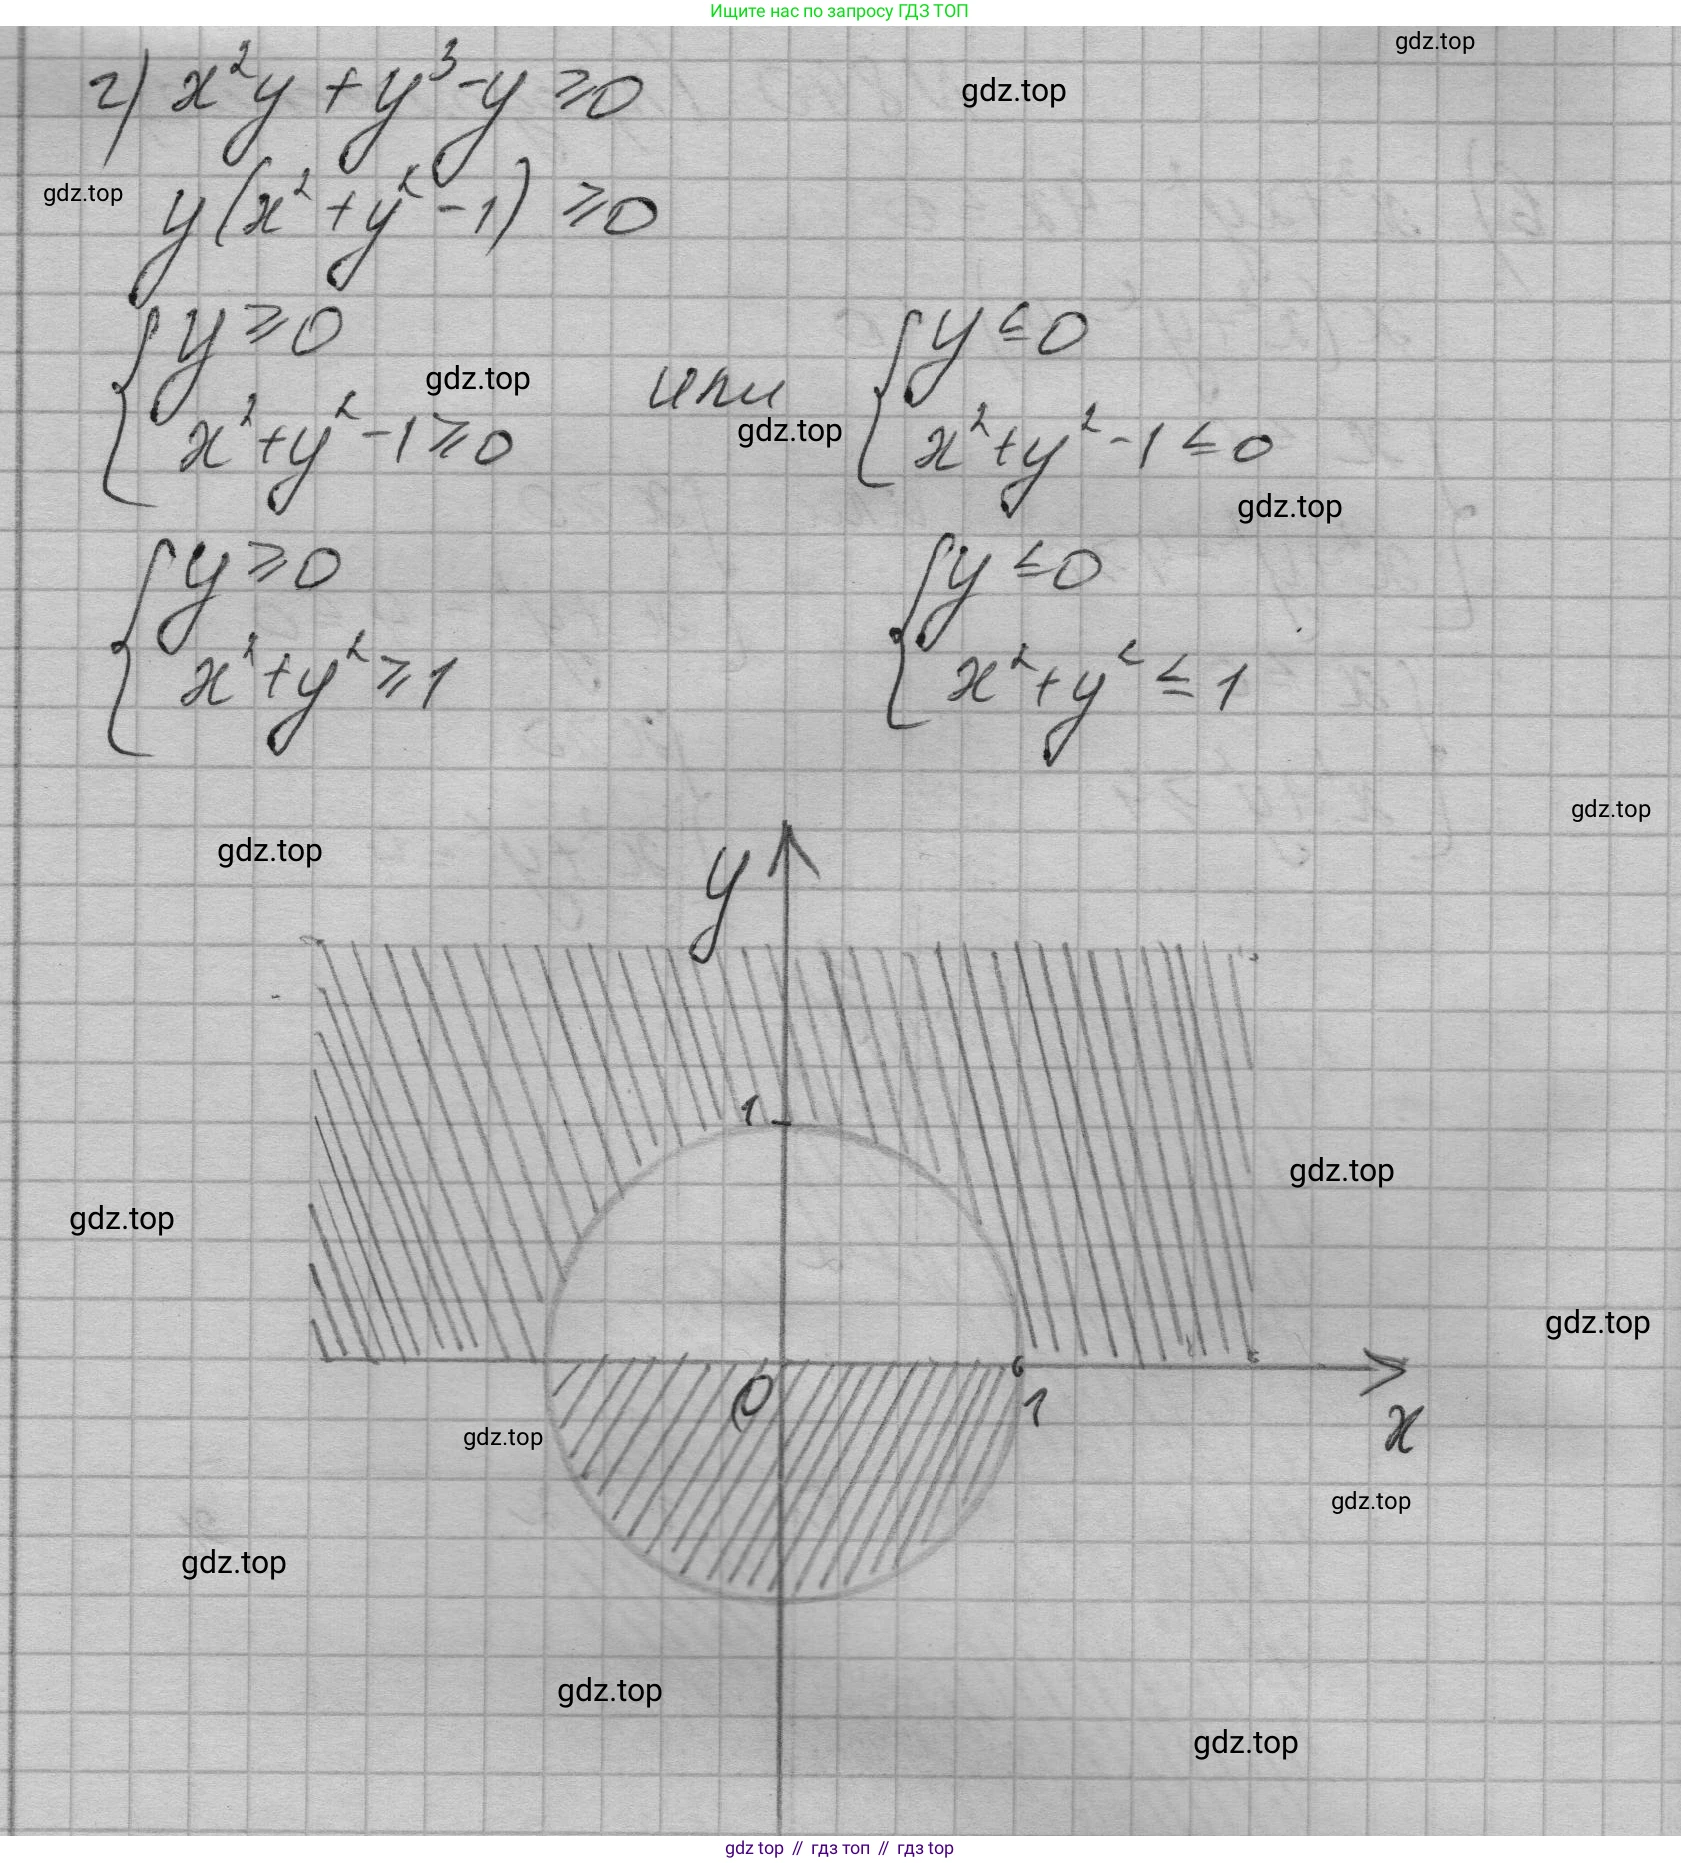 Ищите нас по запросу ГДЗ ТОП
gdz.top
г) x²y + y³ - y ≥ 0
gdz.top
gdz.top
y(x² + y² - 1) ≥ 0
{ y ≥ 0
x² + y² - 1 ≥ 0
gdz.top
или
gdz.top
{ y ≤ 0
x² + y² - 1 ≤ 0
gdz.top
{ y ≥ 0
x² + y² ≥ 1
{ y ≤ 0
x² + y² ≤ 1
gdz.top
gdz.top
y
1
gdz.top
gdz.top
gdz.top
0
1
x
gdz.top
gdz.top
gdz.top
gdz.top
gdz.top
gdz top // гдз топ // гдз top